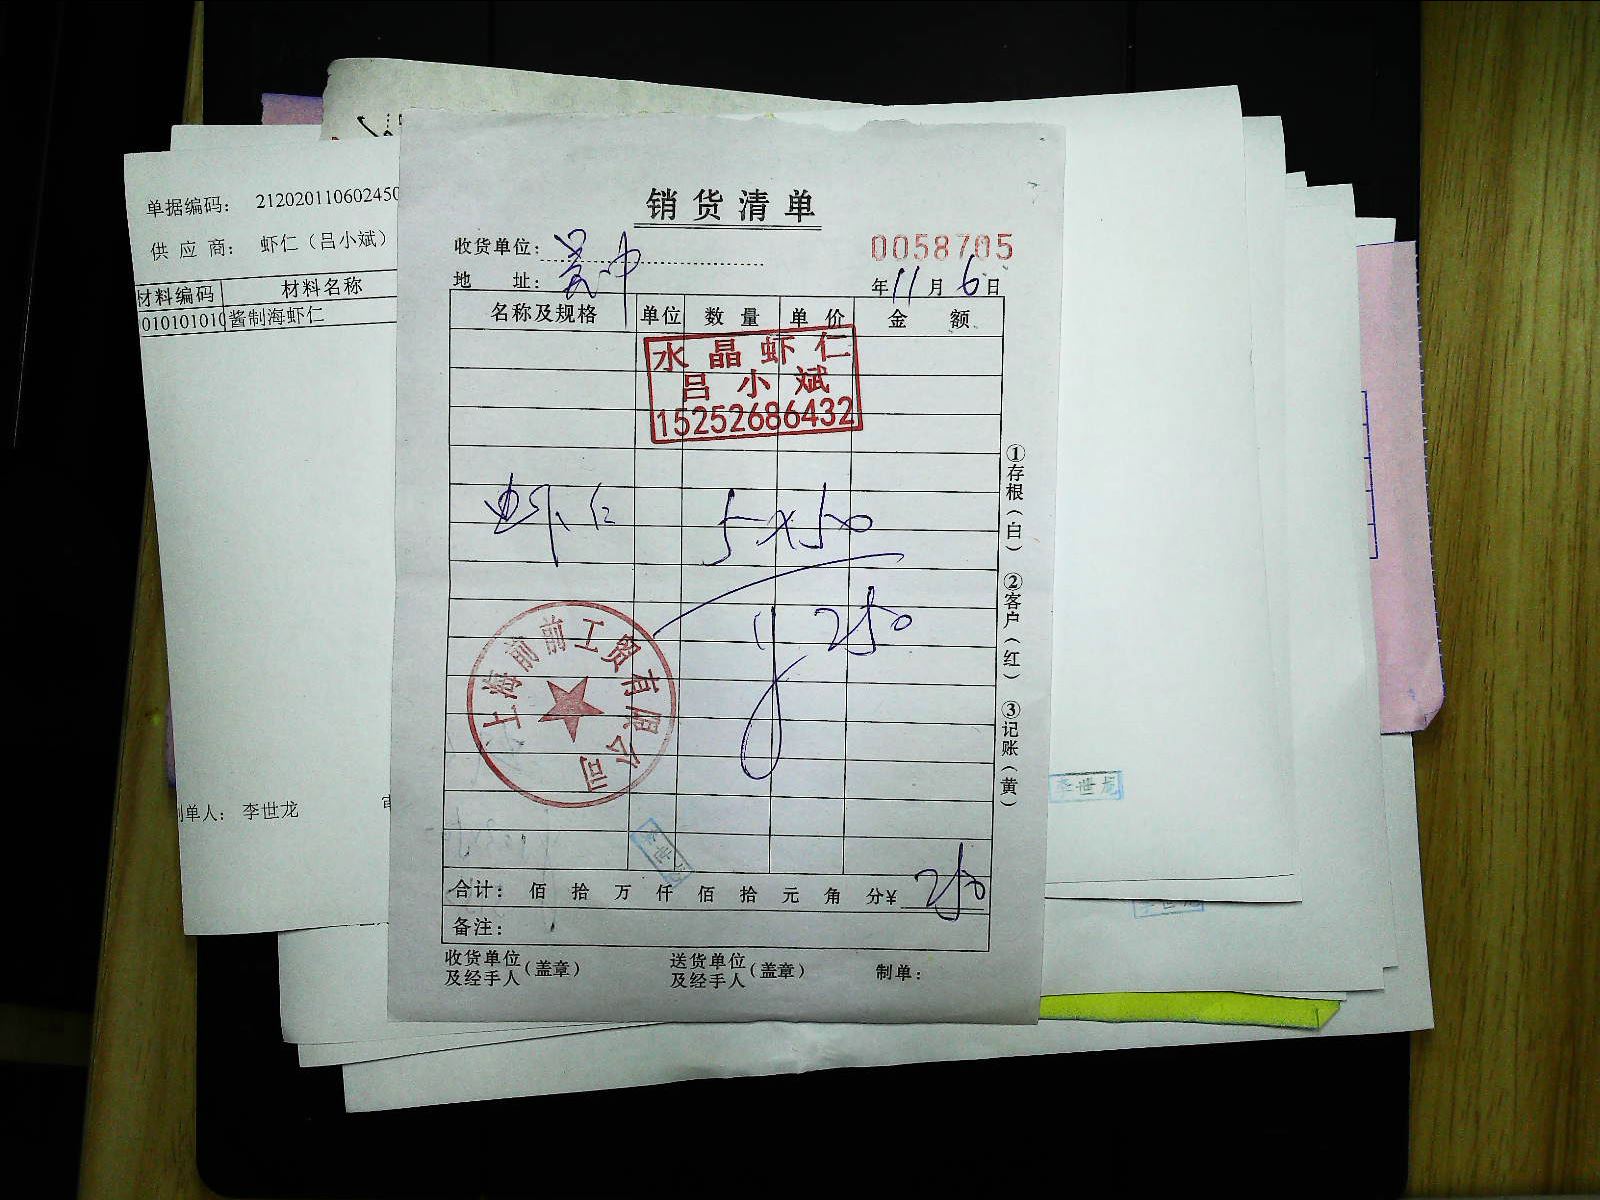 单据编码： 212020110602450
供 应 商： 虾仁（吕小斌）
材料编码 材料名称
010101010 酱制海虾仁
制单人： 李世龙
销货清单
收货单位：
0058705
地 址：
年11月6日
名称及规格 单位 数量 单价 金额
水晶虾仁
吕小斌
15252686432
虾仁 5×50
250
上海前前工贸有限公司
①存根（白） ②客户（红） ③记账（黄）
李世龙
合计： 佰 拾 万 仟 佰 拾 元 角 分¥ 250
备注：
收货单位及经手人（盖章） 送货单位及经手人（盖章） 制单：